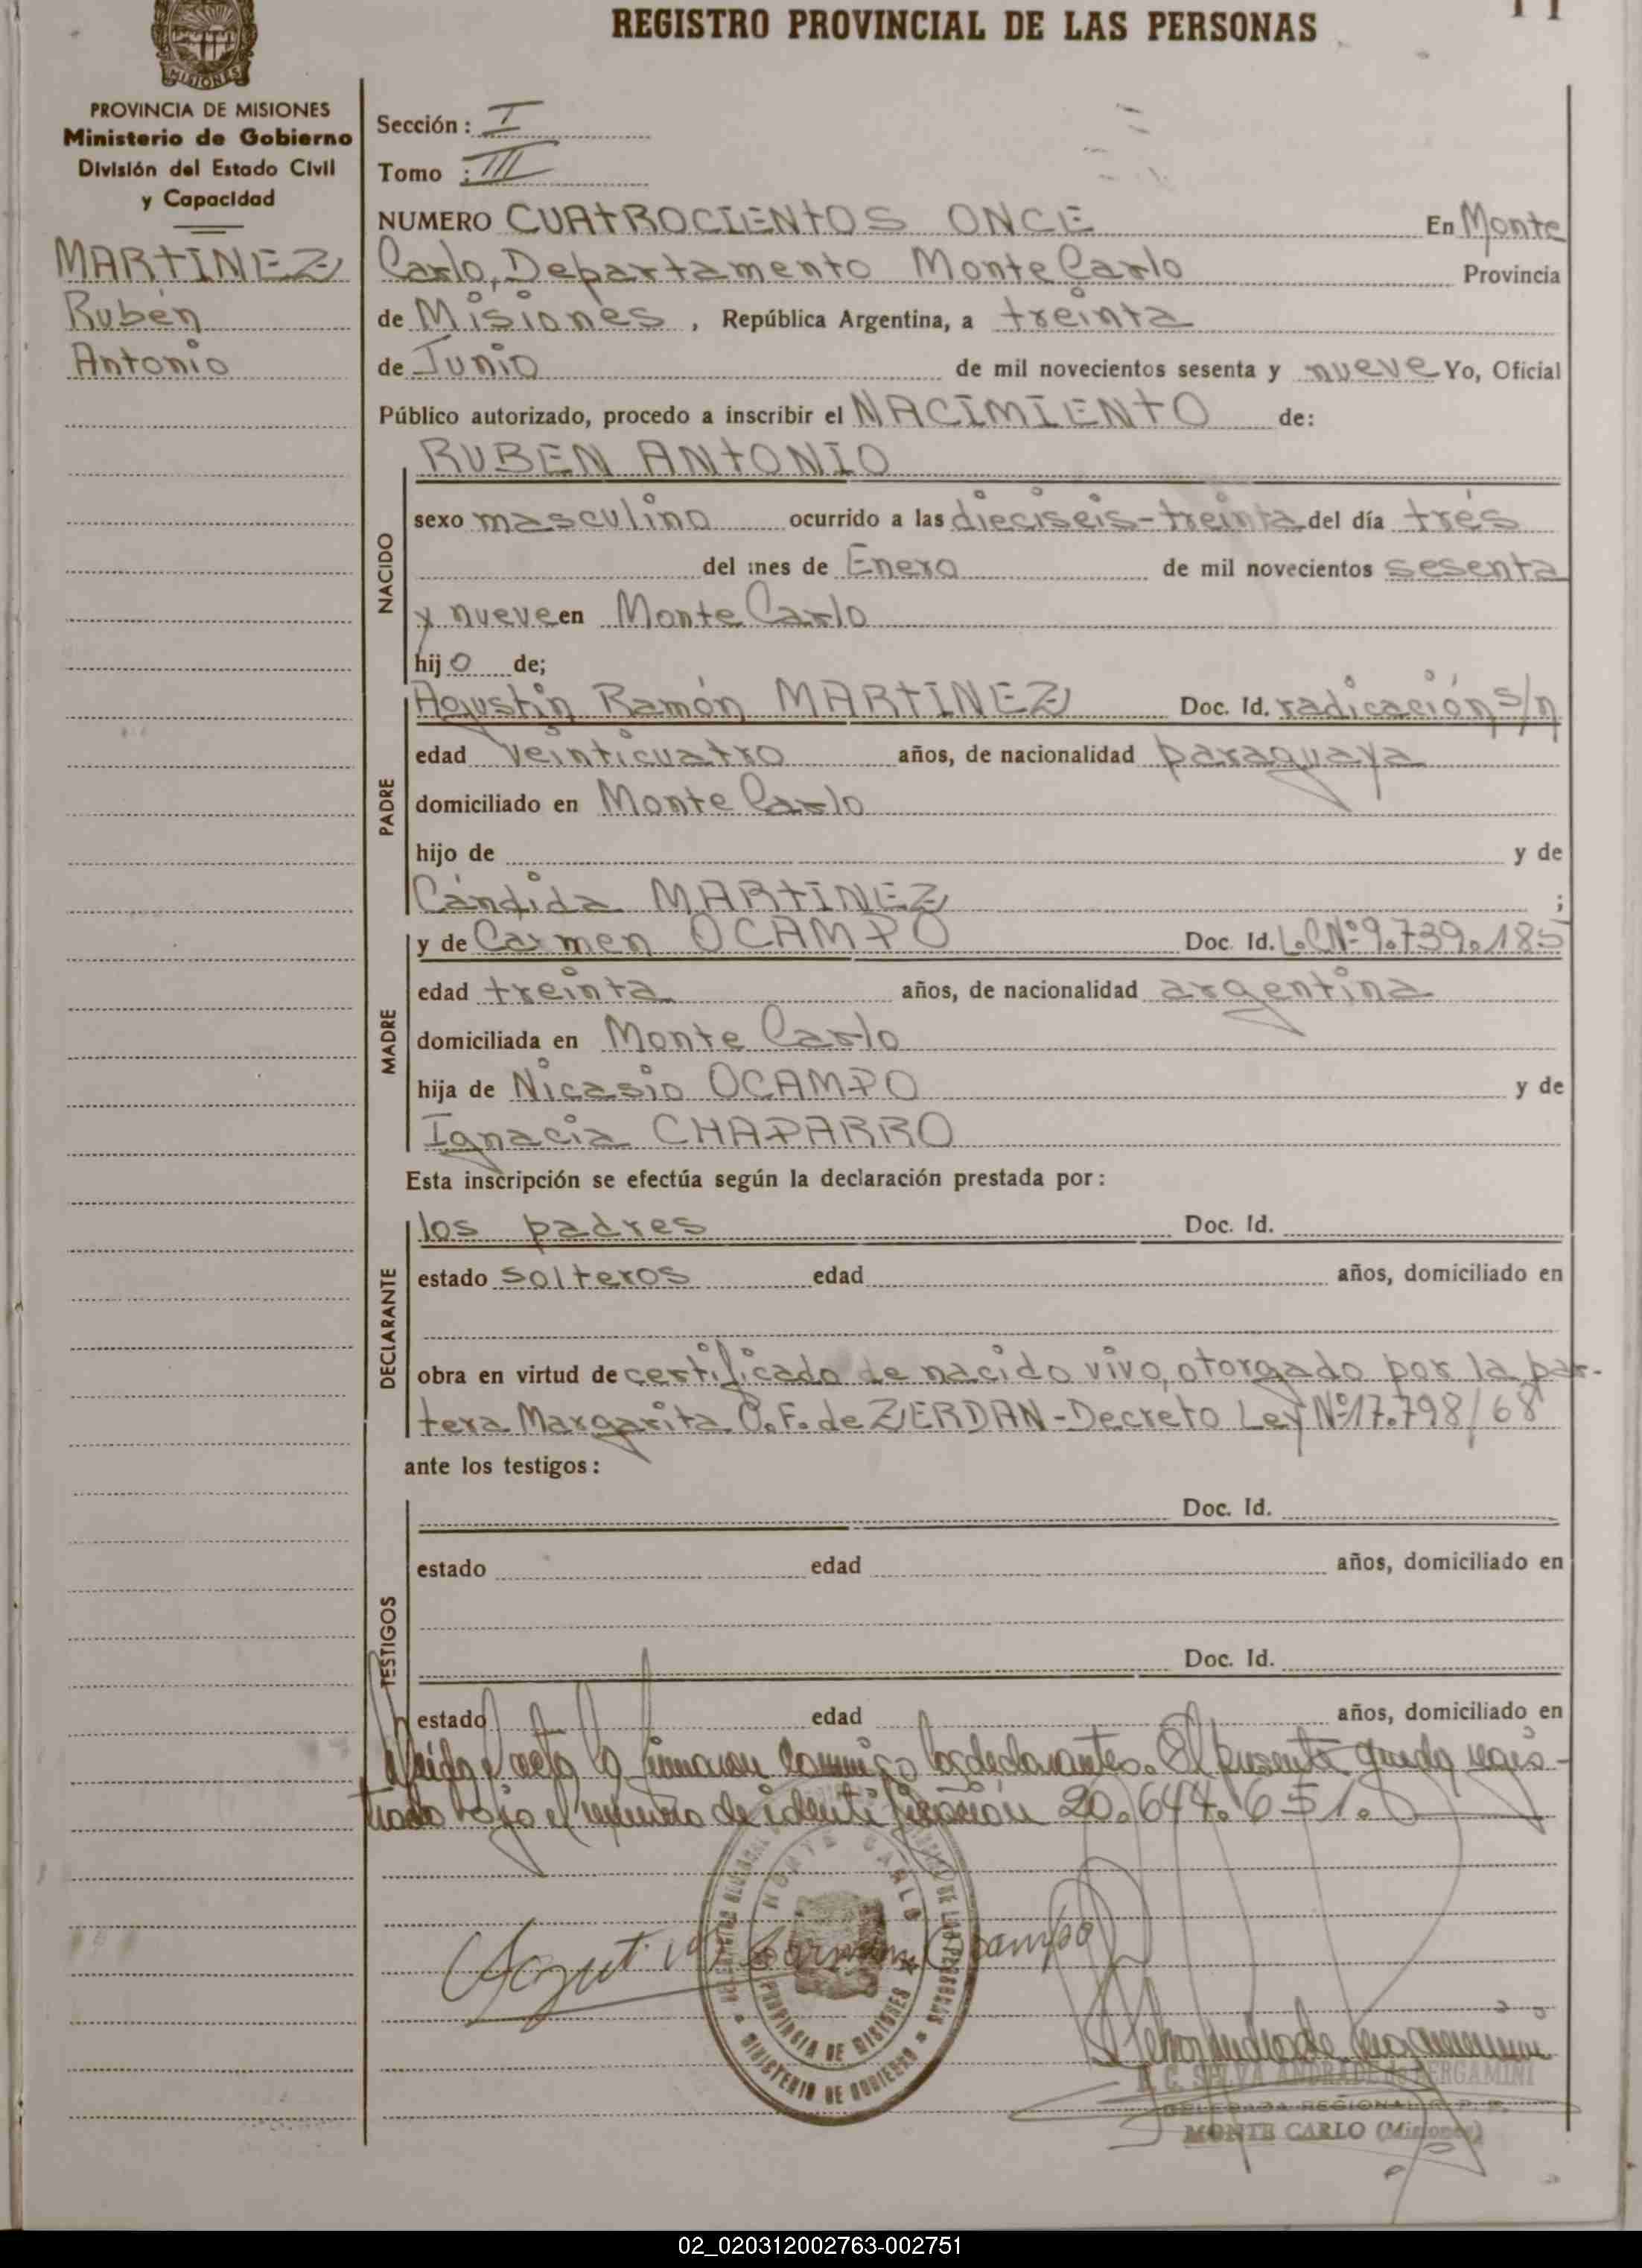 REGISTRO PROVINCIAL DE LAS PERSONAS
MISIONES
PROVINCIA DE MISIONES
Ministerio de Gobierno
División del Estado Civil
y Capacidad
MARTINEZ
Rubén
Antonio
Sección: I
Tomo: III
NUMERO CUATROCIENTOS ONCE En Monte
Carlo, Departamento Monte Carlo Provincia
de Misiones, República Argentina, a treinta
de Junio de mil novecientos sesenta y nueve Yo, Oficial
Público autorizado, procedo a inscribir el NACIMIENTO de:
RUBEN ANTONIO
NACIDO
sexo masculino ocurrido a las dieciseis-treinta del día tres
del mes de Enero de mil novecientos sesenta
y nueve en Monte Carlo
hijo de;
PADRE
Agustín Ramón MARTINEZ Doc. Id. radicación s/n
edad veinticuatro años, de nacionalidad paraguaya
domiciliado en Monte Carlo
hijo de y de
Cándida MARTINEZ ;
MADRE
y de Carmen OCAMPO Doc. Id. L.C.Nº9.739.185
edad treinta años, de nacionalidad argentina
domiciliada en Monte Carlo
hija de Nicasio OCAMPO y de
Ignacia CHAPARRO
Esta inscripción se efectúa según la declaración prestada por:
DECLARANTE
los padres Doc. Id.
estado solteros edad años, domiciliado en
obra en virtud de certificado de nacido vivo, otorgado por la par-
tera Margarita O.F. de ZERDAN-Decreto Ley Nº17.798/68
ante los testigos:
TESTIGOS
Doc. Id.
estado edad años, domiciliado en
Doc. Id.
estado edad años, domiciliado en
Leída el acta la firmaron conmigo los declarantes. El presente queda regis-
trado bajo el número de identificación 20.644.651.
MONTE CARLO
PROVINCIA DE MISIONES
MINISTERIO DE GOBIERNO
Carmen Ocampo
SELVA ANDRADE de BERGAMINI
DELEGADA REGIONAL R. P. P.
MONTE CARLO (Misiones)
02_020312002763-002751